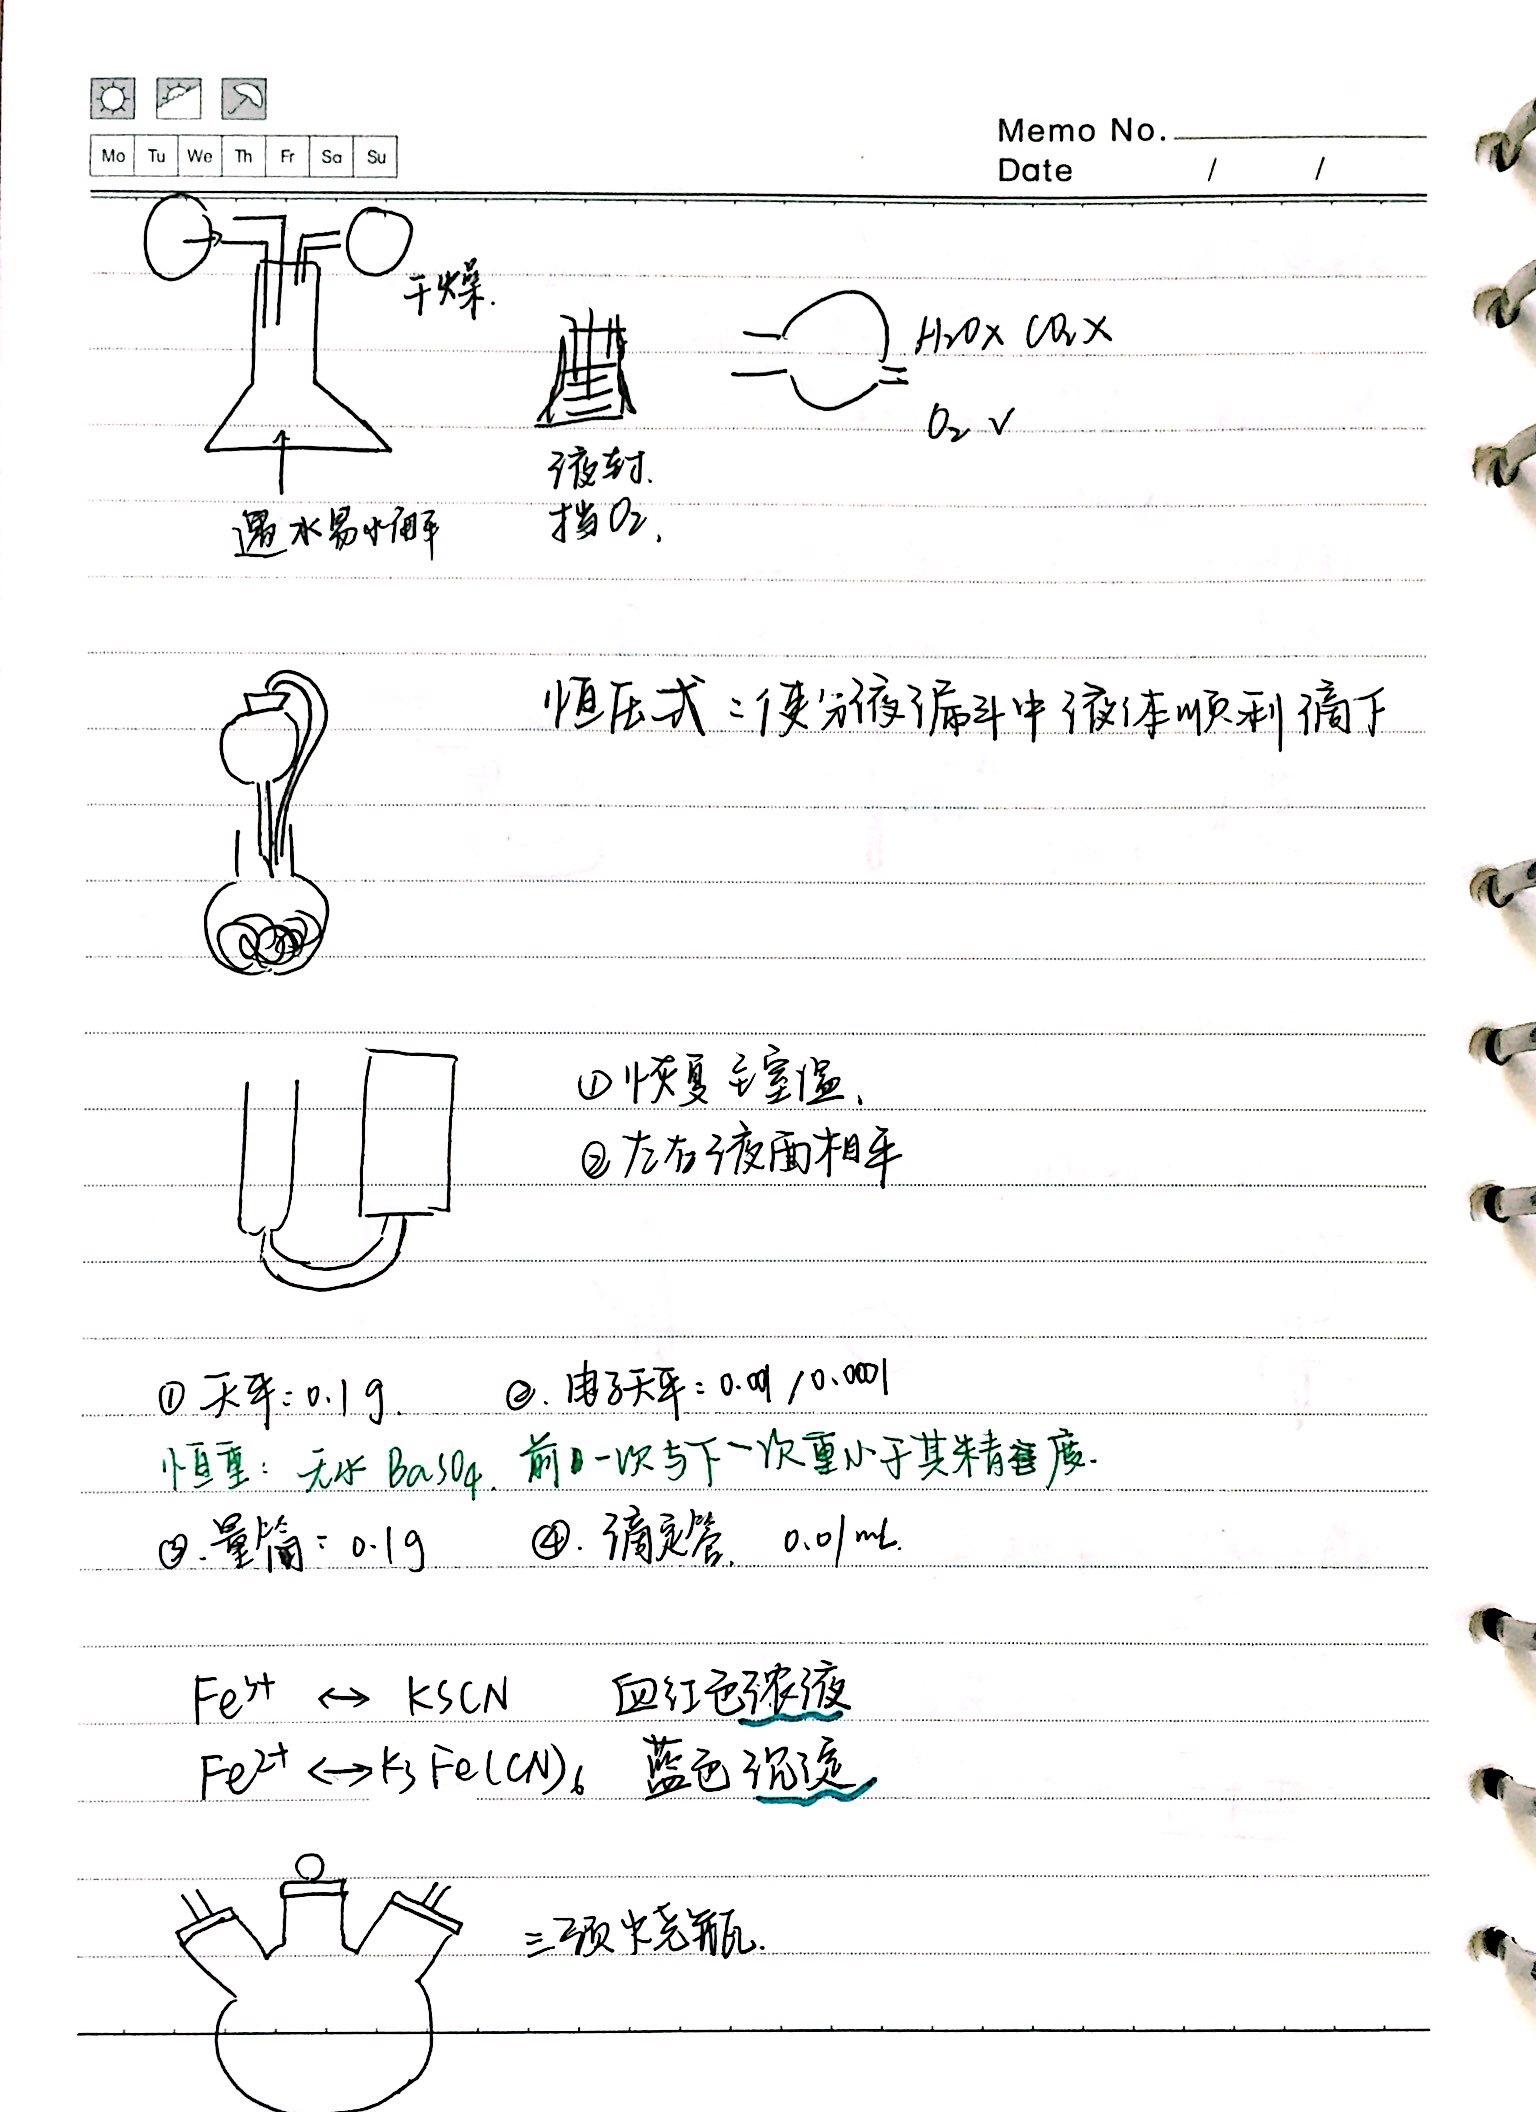 Memo No.
Mo Tu We Th Fr Sa Su
Date / /
干燥.
H₂O× CO₂×
O₂ √
液封.
挡O₂.
遇水易水解
恒压式：使分液漏斗中液体顺利滴下
①恢复至室温、
②左右液面相平
①天平：0.1g. ②.电子天平：0.001/0.0001
恒重：无水BaSO₄. 前一次与下一次重小于其精密度.
③.量筒：0.1g ④.滴定管. 0.01mL.
Fe³⁺ ↔ KSCN 血红色浓液
Fe²⁺ ↔ K₃Fe(CN)₆ 蓝色沉淀
三颈烧瓶.